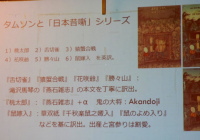 タムソンと「日本昔噺」シリーズ
1)桃太郎 2)舌切雀 3)猿蟹合戦
4)花咲爺 5)勝々山 6)鼠嫁入 木英訳。
『舌切雀』『猿蟹合戦』『花咲爺』『勝々山』：
滝沢馬琴の『燕石雑志』の本文を丁寧に訳出。
『桃太郎』：『燕石雑志』＋α 鬼の大将：Akandoji
『鼠嫁入』：草双紙『千秋楽鼠之嫁入』『鼠のよめ入り』
などを基に訳出。出産と宮参りは割愛。